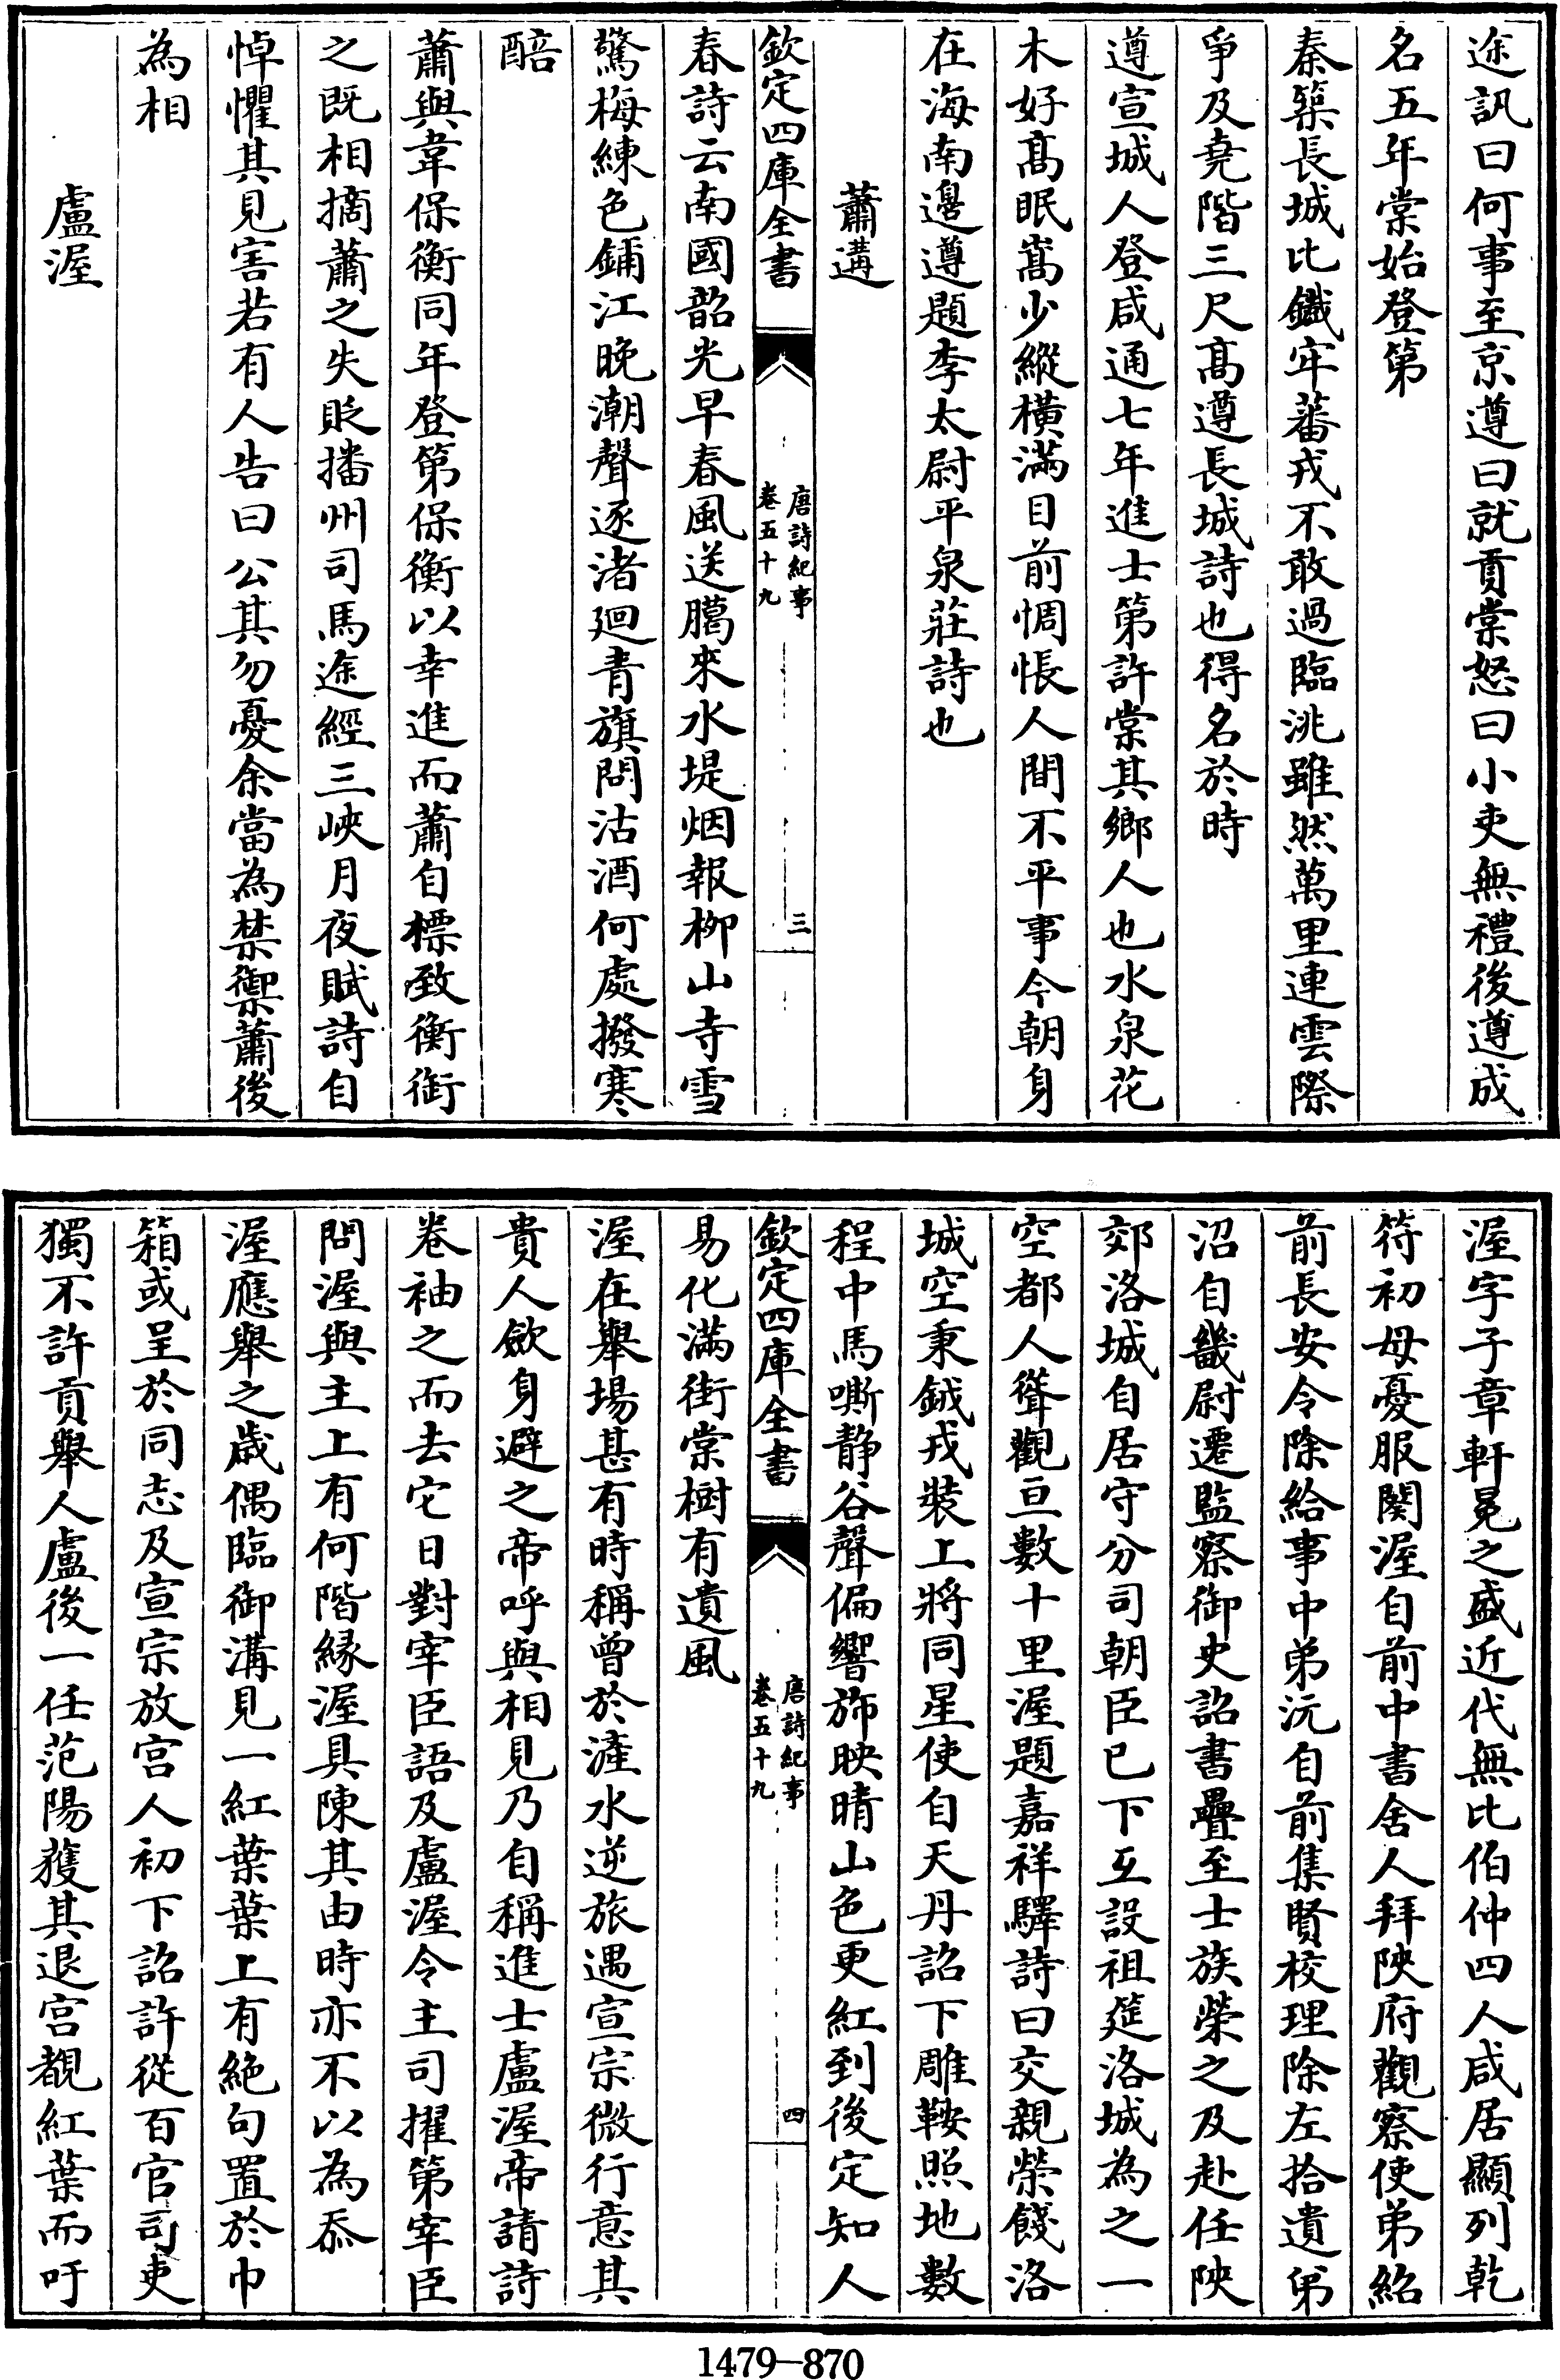 途訊曰何事至京遵曰就貢棠怒曰小吏無禮後遵成
名五年棠始登第
秦築長城比鐵牢蕃戎不敢過臨洮雖然萬里連雲際
爭及堯階三尺髙遵長城詩也得名於時
遵宣城人登咸通七年進士第許棠其鄉人也水泉花
木好髙眠嵩少縱橫滿目前惆悵人間不平事今朝身
在海南邊遵題李太尉平泉莊詩也
蕭遘
欽定四庫全書
唐詩紀事
卷五十九
三
春詩云南國韶光早春風送臈來水堤烟報柳山寺雪
驚梅練色鋪江晚潮聲逐渚廻青旗問沽酒何處撥寒
醅
蕭與韋保衡同年登第保衡以幸進而蕭自標致衡銜
之既相摘蕭之失貶播州司馬途經三峽月夜賦詩自
悼懼其見害若有人告曰公其勿憂余當為禁禦蕭後
為相
盧渥
渥字子章軒冕之盛近代無比伯仲四人咸居顯列乾
符初母憂服闋渥自前中書舍人拜陜府觀察使弟紹
前長安令除給事中弟沆自前集賢校理除左拾遺弟
沼自畿尉遷監察御史詔書疊至士族榮之及赴任陜
郊洛城自居守分司朝臣已下互設祖筵洛城為之一
空都人聳觀亘數十里渥題嘉祥驛詩曰交親榮餞洛
城空秉鉞戎裝上將同星使自天丹詔下雕鞍照地數
程中馬嘶静谷聲偏響斾映晴山色更紅到後定知人
欽定四庫全書
唐詩紀事
卷五十九
四
易化滿街棠樹有遺風
渥在舉場甚有時稱曾於滻水逆旅遇宣宗微行意其
貴人斂身避之帝呼與相見乃自稱進士盧渥帝請詩
卷袖之而去它日對宰臣語及盧渥令主司擢第宰臣
問渥與主上有何階縁渥具陳其由時亦不以為忝
渥應舉之歲偶臨御溝見一紅葉葉上有絶句置於巾
箱或呈於同志及宣宗放宫人初下詔許從百官司吏
獨不許貢舉人盧後一任范陽獲其退宫覩紅葉而吁
1479—870